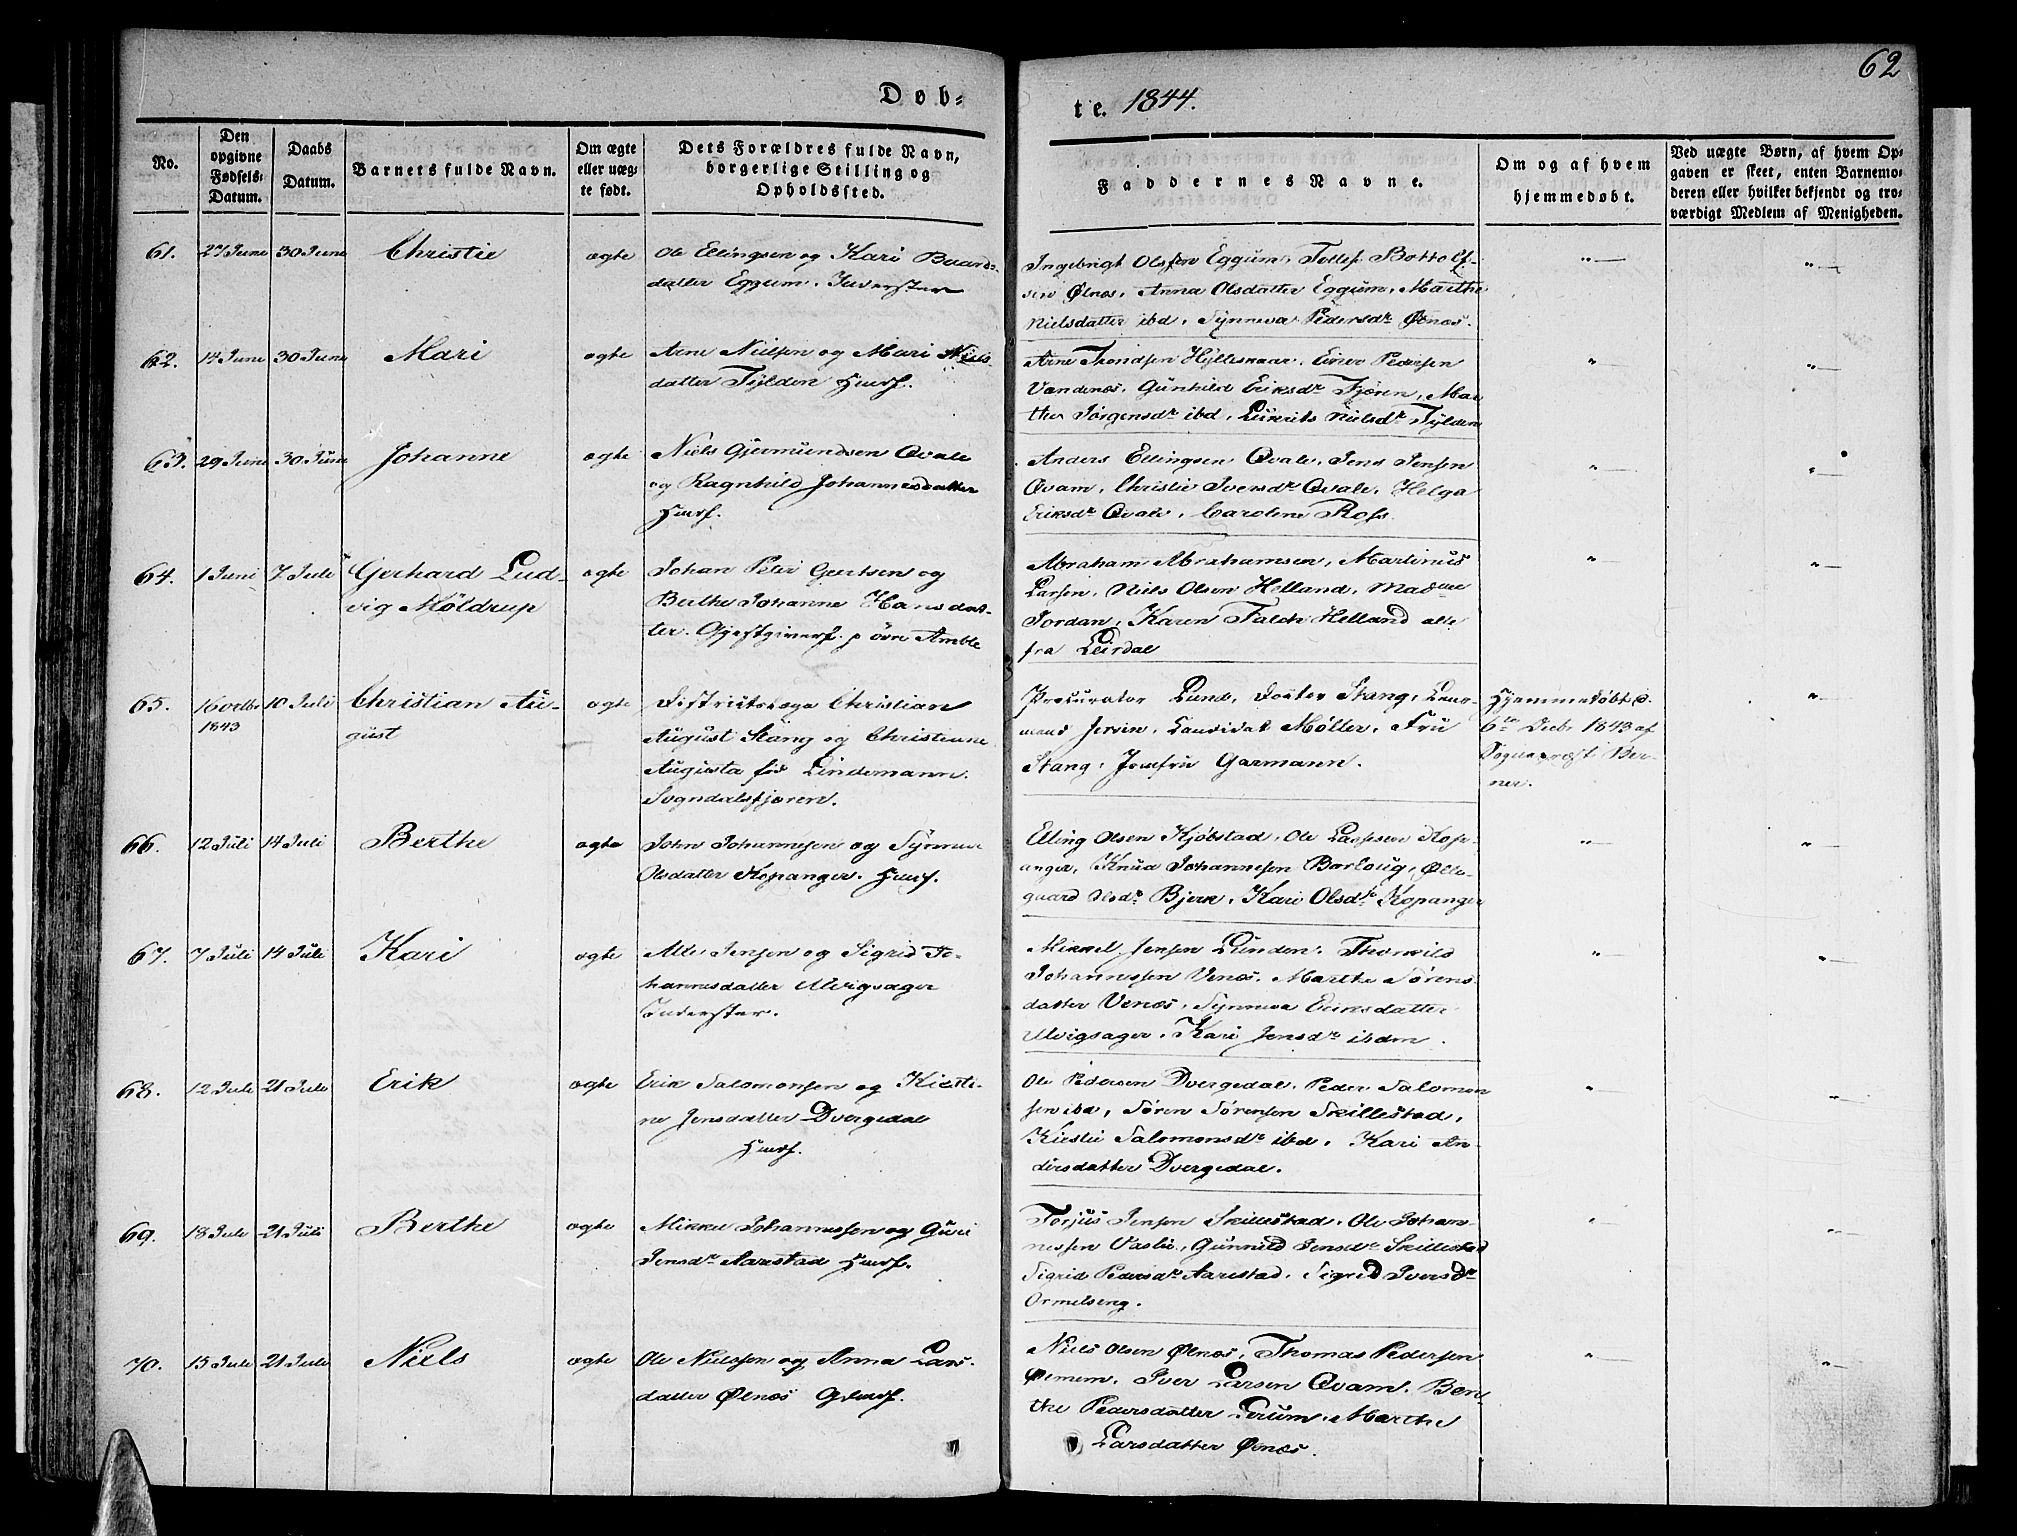 62
Døb=
te. 1844.
No.
Den
opgivne
Fødsels-
Datum.
Daabs
Datum.
Barnets fulde Navn.
Om ægte
eller uæg-
te født.
Dets Forældres fulde Navn,
borgerlige Stilling og
Opholdssted.
Faddernes Navne.
Om og af hvem
hjemmedøbt.
Ved uægte Børn, af hvem Op-
gaven er skeet, enten Barnemo-
deren eller hvilket bekjendt og tro-
værdigt Medlem af Menigheden.
61. 27 Juni 30 Juni Christie ægte
Ole Ellingsen og Kari Baards-
datter Eggum.
Ingebrigt Olssen Eggum, Tollef Bottolf-
sen Ølnæs, Anna Olsdatter Eggum, Marthe
Nielsdatter ibd, Synneva Pedersdr Ølnæs.
62. 14 Juni 30 Juni Mari ægte
Arne Nielsen og Mari Niels
datter Fylden Huusf.
Arne Trondsen Hyllesvaar, Einer Pedersen
Vendenæs, Gunhild Eriksdr Fjøren, Mar
the Jørgensdr ibd, Nielsdr Fylden
63. 29 Juni 30 Juni Johanne ægte
Niels Gjermundsen Qvale
og Ragnhild Johannesdatter
Huusf.
Anders Ellingsen Qvale, Jens Jensen
Qvam, Christie Iversdr Qvale, Helga
Eriksdr Qvale, Caroline Ross
64. 1 Juni 7 Juli Gerhard Lud-
vig Møldrup ægte
Johan Peter Geertsen og
Berthe Johanne Hansdat-
ter. Gjestgiverf. p øvre Amble
Abraham Abrahamsen, Martinus
Larsen, Niels Olsen Helland, Madme
Jordan, Karen Falch Helland alle
fra Leirdal
65. 16 octbr
1843 10 Juli Christian Au-
gust ægte
Districtslæge Christian
August Stang og Christenne
Augusta fød Lindemann.
Sogndalsfjøren.
Procurator Lund, Doctor Stang, Lens-
mand Jersin, Candidat Møller, Fru
Stang, Jomfru Garmann.
Hjemmedøbt d.
6te Decbr 1843 af
Sogneprest Ber-
ner.
66. 12 Juli 14 Juli Berthe ægte
John Johannesen og Synneve
Olsdatter Kopanger. Huusf.
Elling Olsen Kjøbstad, Ole Larssen Kop-
anger, Knud Johannesen Barloug, Olle-
gaard Olsdr Bjerk, Kari Olsdr Kopanger
67. 7 Juli 14 Juli Kari ægte
Atle Jensen og Sigrid Jo-
hannesdatter Ulvigsager
Mikkel Jensen Lunden, Thorkild
Johannessen Venæs, Marthe Sørens
datter Venæs, Synneva Eriksdatter
Ulvigsager, Kari Jensdr ibdm.
68. 12 Juli 21 Juli Erik ægte
Erik Salomonsen og Kiersti-
ne Jensdatter Dvergedal
Huusf.
Ole Pedersen Dvergedal, Peder Salomon
sen ibd, Søren Sørensen Skillestad,
Kirstie Salomonsdr ibd, Kari An
dersdatter Dvergedal.
69. 18 Juli 21 Juli Berthe ægte
Mikkel Johannessen og Guri
Jensdr Aarestad Huusf.
Torjus Jensen Skillestad, Ole Johan-
nessen Vaslie, Gunnild Jensdr Skillestad
Sigrid Pedersdr Aarestad, Sigrid Iversdr
Ormelseng.
70. 15 Juli 21 Juli Niels ægte
Ole Nielssen og Anna Lars-
datter Ølnæs
Niels Olsen Ølnæs, Thomas Pedersen
Iver Larsen Qvam, Ber
the Pedersdatter Lerum, Marthe
Larsdatter Ølnæs.